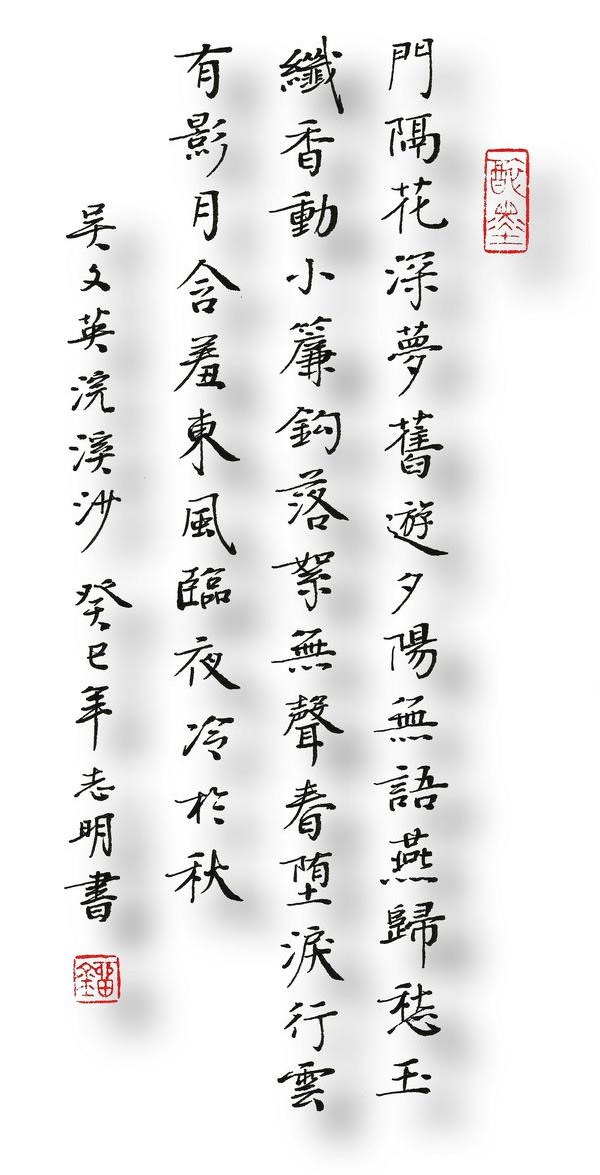 門隔花深夢舊遊夕陽無語燕歸愁玉
纖香動小簾鈎落絮無聲春堕淚行雲
有影月含羞東風臨夜冷於秋
吳文英浣溪沙 癸巳年志明書